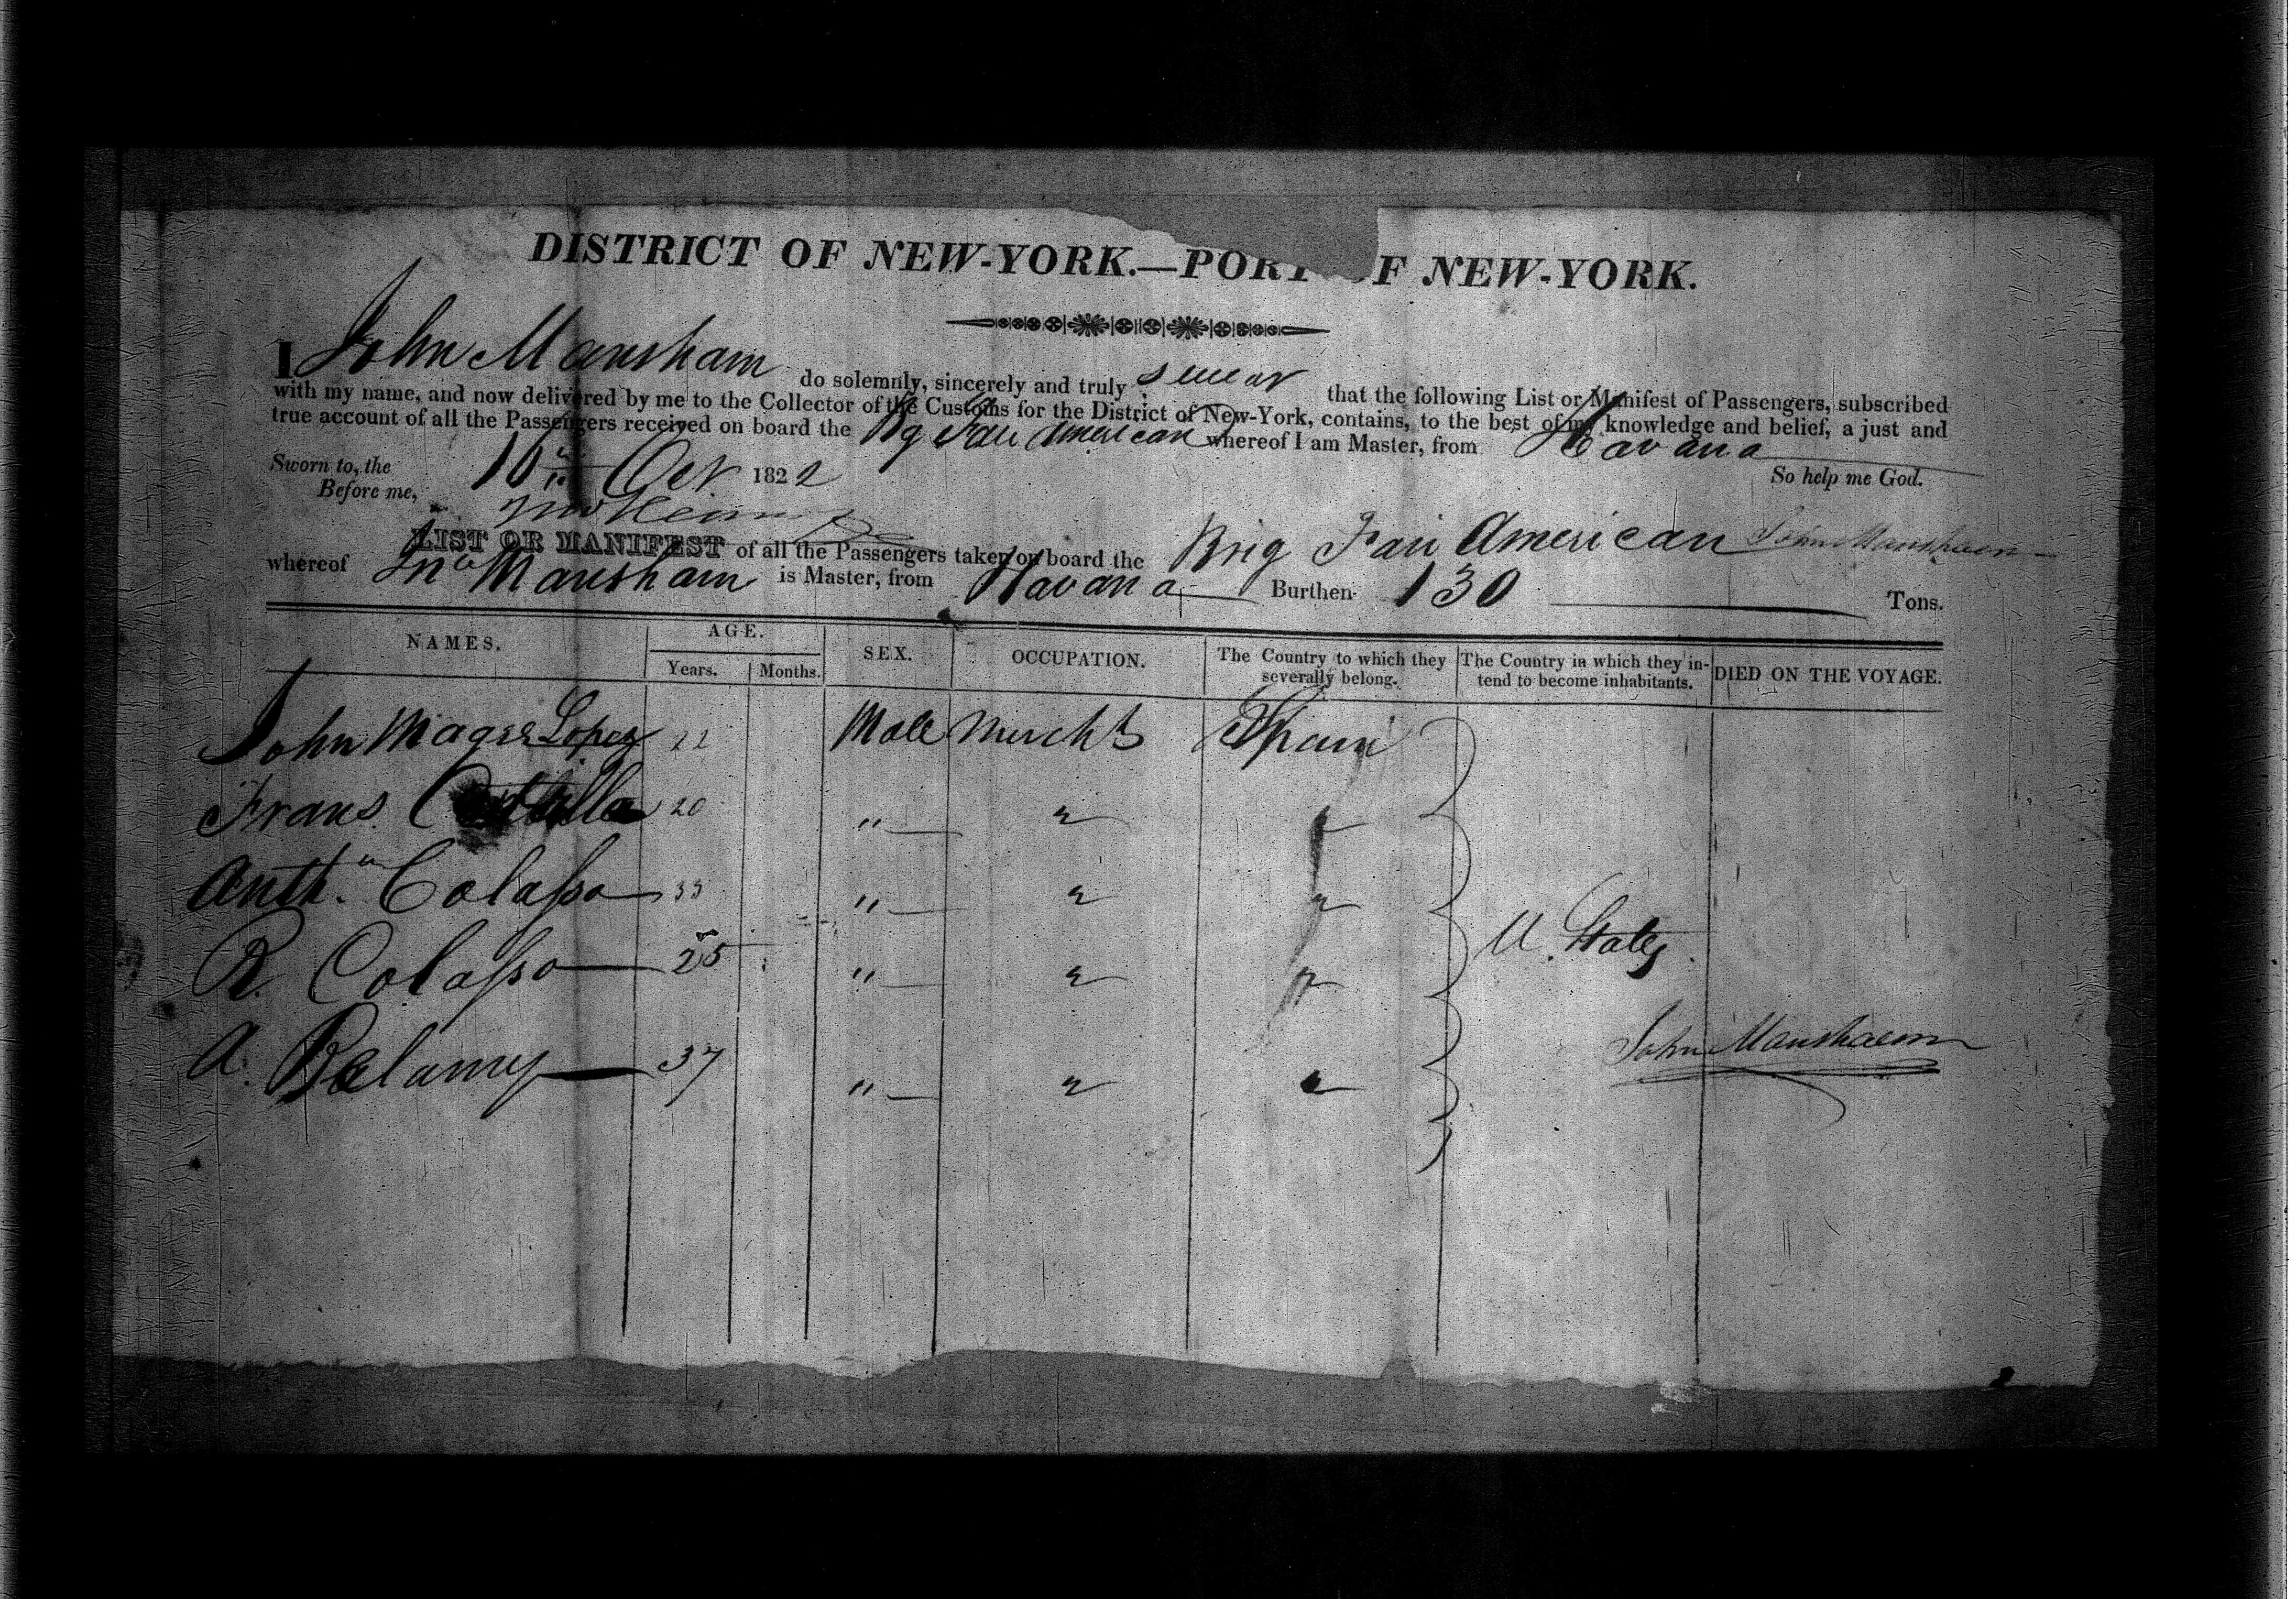 DISTRICT OF NEW-YORK.—PORT OF NEW-YORK.
I John Mansham do solemnly, sincerely and truly swear that the following List or Manifest of Passengers, subscribed
with my name, and now delivered by me to the Collector of the Customs for the District of New-York, contains, to the best of my knowledge and belief, a just and
true account of all the Passengers received on board the Bg Fair American whereof I am Master, from Havana
Sworn to, the 16 Oct 1822 So help me God.
Before me,
LIST OR MANIFEST of all the Passengers taken on board the Brig Fair American John Mansham
whereof Jno Mansham is Master, from Havana Burthen 130 Tons.
NAMES. AGE. SEX. OCCUPATION. The Country to which they severally belong. The Country in which they intend to become inhabitants. DIED ON THE VOYAGE.
Years. Months.
John Lopez 22 Male Mercht Spain
Frans 20 " " "
Anth. Colasso 33 " " "
R. Colasso 25 " " " U. States.
A. Belamy 37 " " "
John Mansham